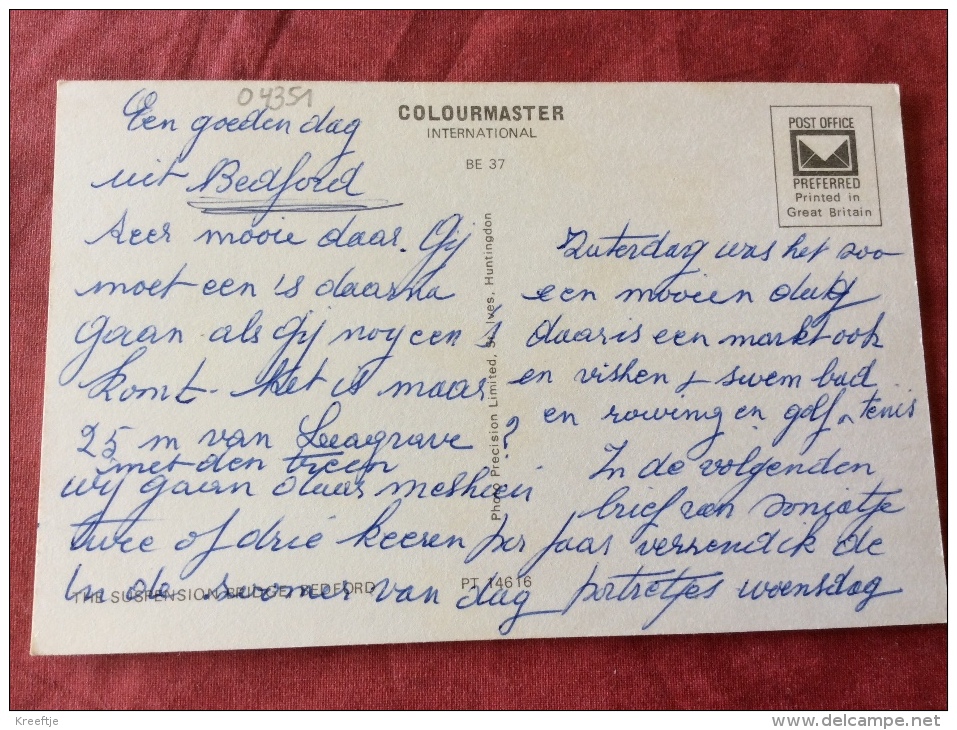 04351
COLOURMASTER
INTERNATIONAL
BE 37
POST OFFICE
PREFERRED
Printed in
Great Britain
Een goeden dag
uit Bedford
zeer mooie daar. Gij
moet een 's daarna
gaan als gij nog een s
komt - het is maar
25 m van Leagrave ?
met den treen
wij gaan daar meshien
twee of drie keeren per jaar
In de soomer van dag
Zaterdag was het zoo
een mooien dag
daar is een markt ook
en vishen + swem bad
en rowing en golf tenis
In de volgenden
brief van soniatje
verzend ik de
portretjes woensdag
Photo Precision Limited, St. Ives, Huntingdon
THE SUSPENSION BRIDGE, BEDFORD
PT 14616
Kreeftje
www.delcampe.net